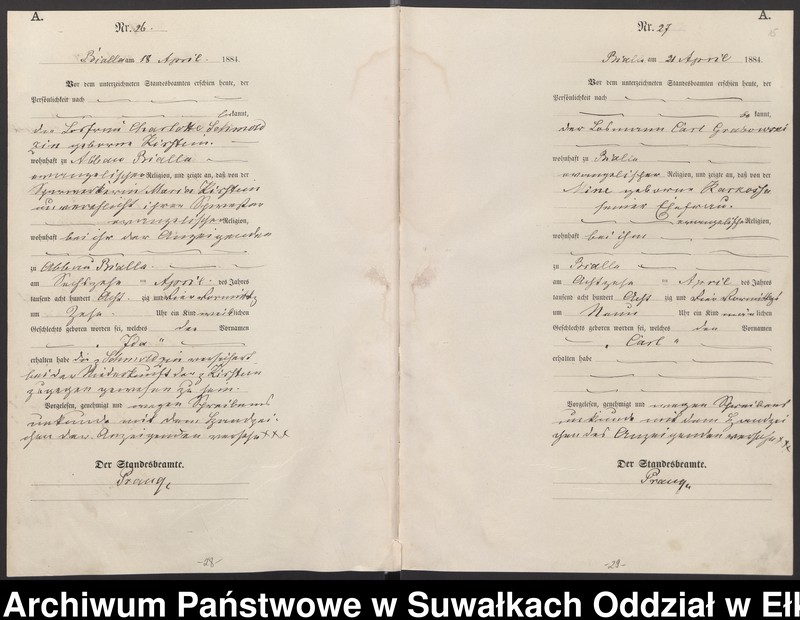 A.
Nr. 26.
Bialla am 18 April. 1884.
Vor dem unterzeichneten Standesbeamten erschien heute, der
Persönlichkeit nach
bekannt,
die Losfrau Charlotte
geborne Kirstein.
wohnhaft zu Abbau Bialla
evangelischer Religion, und zeigte an, daß von der
Marie Kirstein
unverehlicht ihrer Schwester
evangelischer Religion,
wohnhaft bei ihr der Anzeigenden
zu Abbau Bialla
am Sechszehn ten April des Jahres
tausend acht hundert Acht zig und Vier Vormittg
um Zehn Uhr ein Kind weiblichen
Geschlechts geboren worden sei, welches den Vornamen
„ Ida “
erhalten habe die versichert
bei der Niederkunft der Kirstein
zugegen gewesen zu sein.
Vorgelesen, genehmigt und wegen Schreibens
unkunde mit dem Handzei
chen der Anzeigenden versehn xxx
Der Standesbeamte.
Prang
-28-
A.
6
Nr. 27
Bialla am 21 April 1884.
Vor dem unterzeichneten Standesbeamten erschien heute, der
Persönlichkeit nach
be kannt,
der Losmann Carl Grabowski
wohnhaft zu Bialla
evangelischer Religion, und zeigte an, daß von der
Mine geborne Karkossa
seiner Ehefrau.
evangelische Religion,
wohnhaft bei ihm
zu Bialla
am Achtzehn ten April des Jahres
tausend acht hundert Acht zig und Vier Vormittgs
um Neun Uhr ein Kind männlichen
Geschlechts geboren worden sei, welches den Vornamen
„ Carl “
erhalten habe
Vorgelesen, genehmigt und wegen Schreibens
unkunde mit dem Handzei
chen des Anzeigenden versehn xxx
Der Standesbeamte.
Prang
-29-
Archiwum Państwowe w Suwałkach Oddział w Ełk